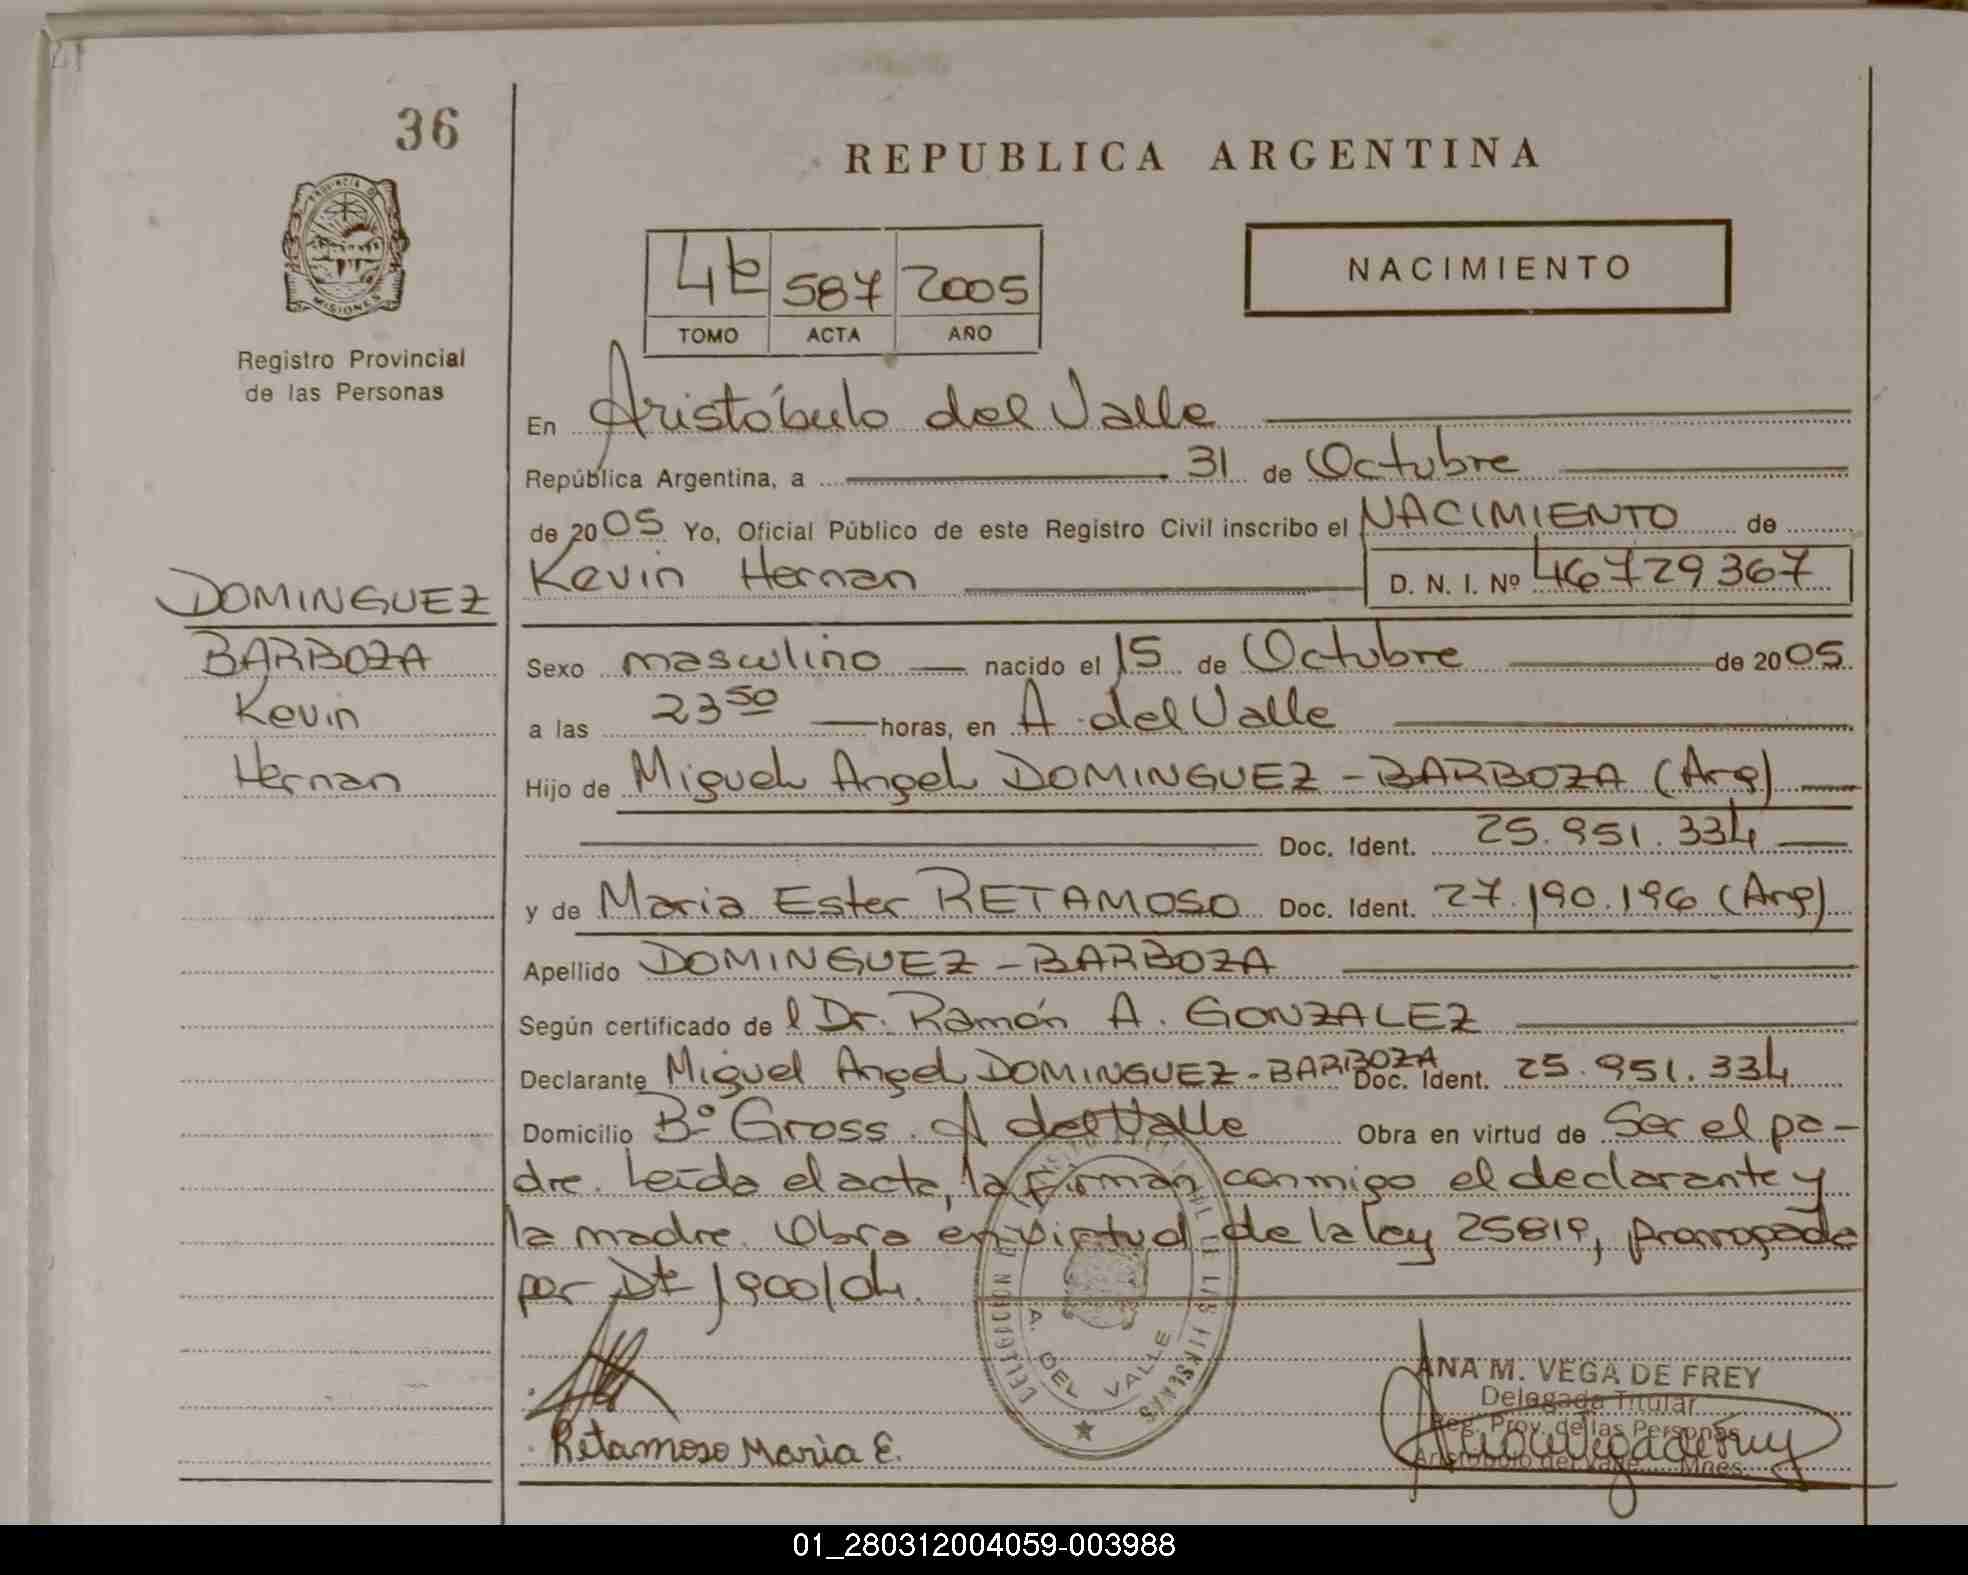 36
REPUBLICA ARGENTINA
PROVINCIA DE
MISIONES
Registro Provincial
de las Personas
4t 587 2005
TOMO ACTA AÑO
NACIMIENTO
En Aristóbulo del Valle
República Argentina, a 31 de Octubre
de 2005 Yo, Oficial Público de este Registro Civil inscribo el NACIMIENTO de
Kevin Hernan D. N. I. Nº 46729367
DOMINGUEZ
BARBOZA
Kevin
Hernan
Sexo masculino nacido el 15 de Octubre de 2005
a las 23 50 horas, en A. del Valle
Hijo de Miguel Angel DOMINGUEZ - BARBOZA (Arg)
Doc. Ident. 25.951.334
y de Maria Ester RETAMOSO Doc. Ident. 27.190.196 (Arg)
Apellido DOMINGUEZ - BARBOZA
Según certificado de l Dr. Ramón A. GONZALEZ
Declarante Miguel Angel DOMINGUEZ - BARBOZA Doc. Ident. 25.951.334
Domicilio Bº Gross. A del Valle Obra en virtud de Ser el pa-
dre. Leída el acta, la firman conmigo el declarante y
la madre. Obra en virtud de la ley 25819, prorrogada
por Dt 1900/04.
A. DEL VALLE
Retamoso Maria E.
ANA M. VEGA DE FREY
Delegada Titular
Reg. Prov. de las Personas
Aristóbulo del Valle Mnes.
01_280312004059-003988